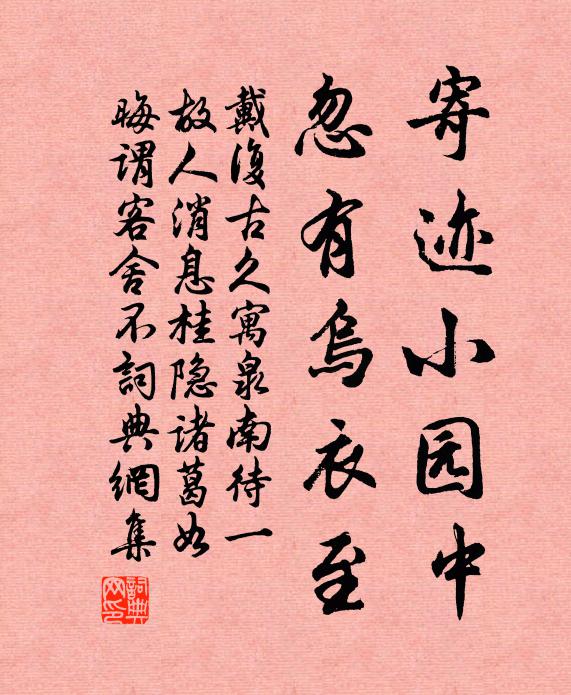 寄迹小园中
忽有乌衣至
戴復古久寓泉南待一
故人消息桂隐诸葛如
晦谓客舍不詞典網集
詞典